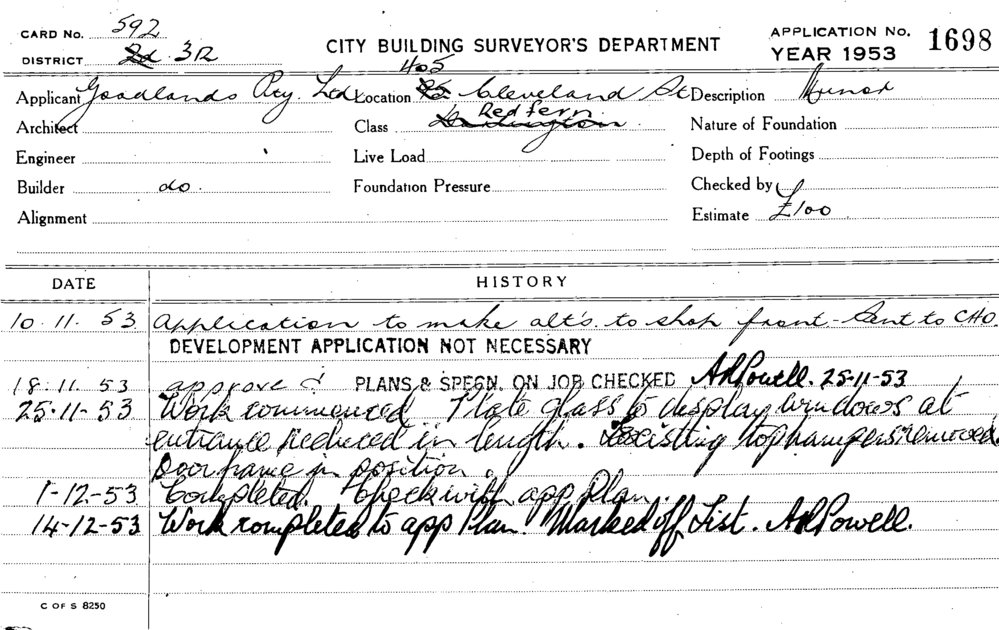 CARD No. 592
DISTRICT 2d. 312
CITY BUILDING SURVEYOR'S DEPARTMENT
APPLICATION No. 1698
YEAR 1953
Applicant Goodlands Pty. Ltd.
Location 405 Cleveland St
Description Minor
Architect
Class Redfern
Nature of Foundation
Engineer
Live Load
Depth of Footings
Builder do.
Foundation Pressure
Checked by
Alignment
Estimate £100
DATE HISTORY
10.11.53 Application to make alt's. to shop front - Sent to CHO.
DEVELOPMENT APPLICATION NOT NECESSARY
18.11.53 approved PLANS & SPECN. ON JOB CHECKED ARPowell. 25-11-53
25-11-53 Work commenced. Plate glass to display windows at
entrance reduced in length. Existing tophampers removed.
Door frame in position.
1-12-53 Completed. Check with app. Plan.
14-12-53 Work completed to app Plan. Marked off List. ARPowell.
C OF S 8250